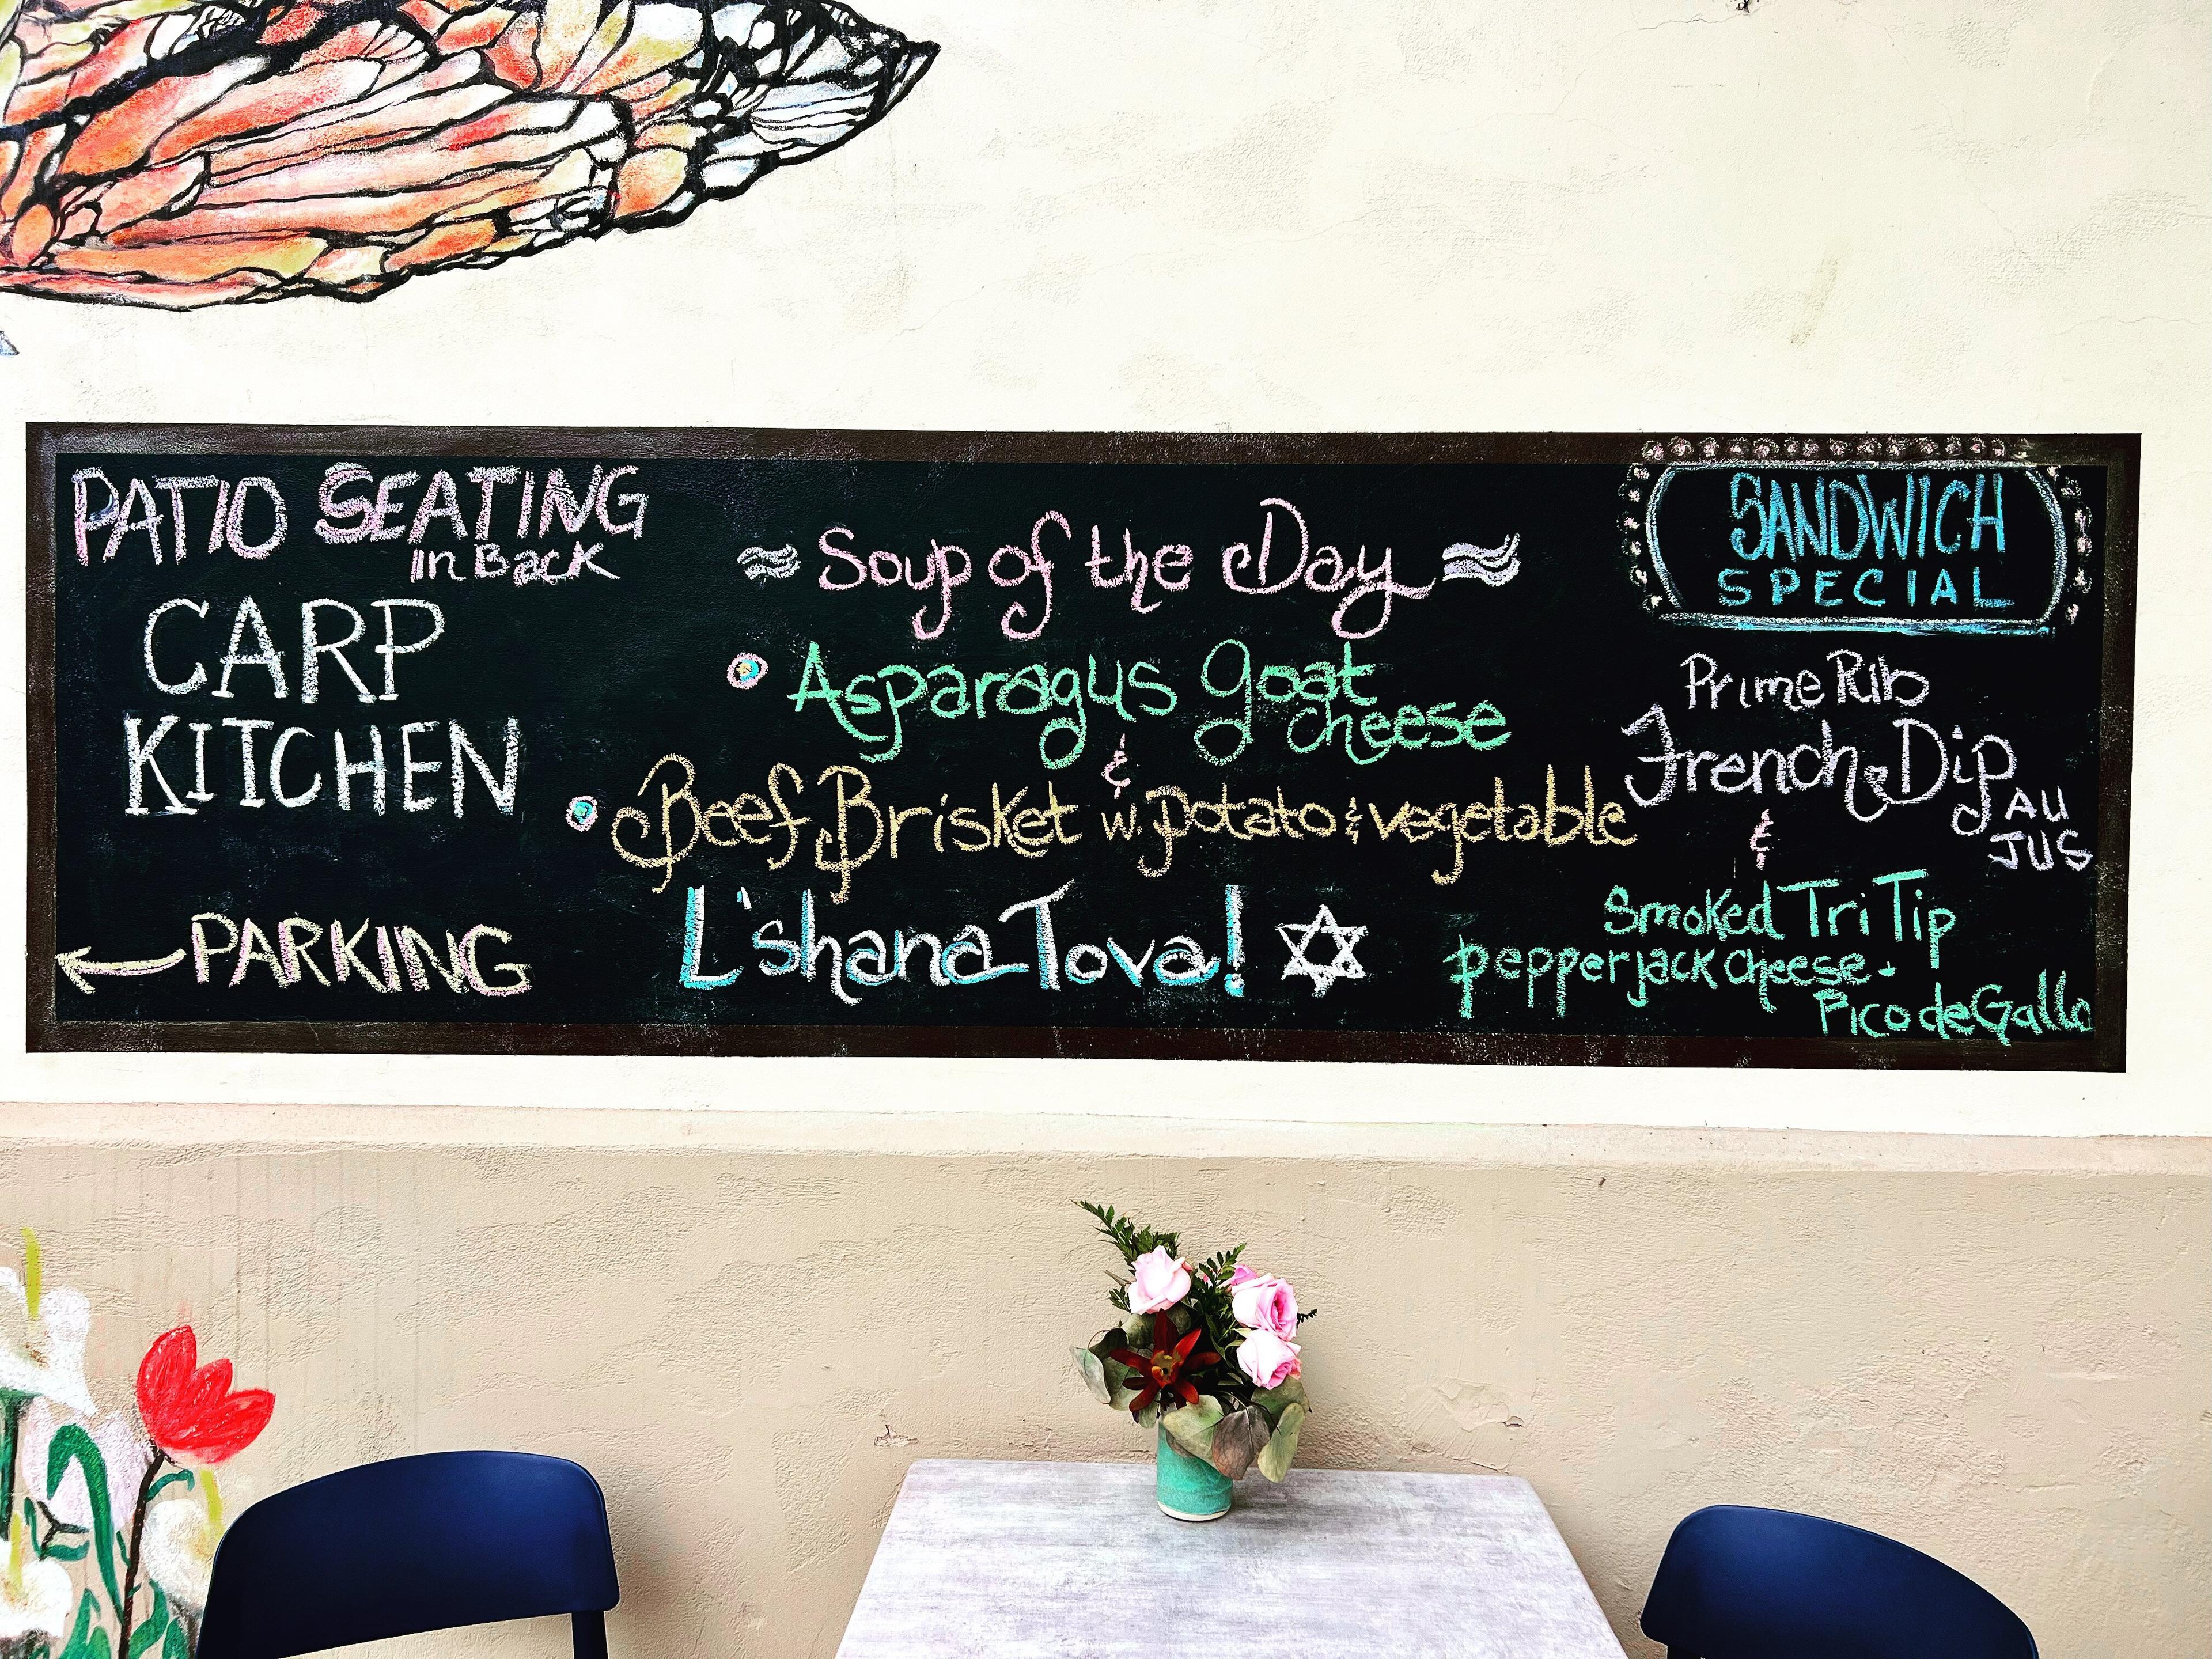 PATIO SEATING
in Back
CARP
KITCHEN
PARKING
Soup of the Day
Asparagus goat
cheese
&
Beef Brisket w. potato & vegetable
L'shana Tova!
SANDWICH
SPECIAL
Prime Rib
French Dip
AU
JUS
&
Smoked Tri Tip
pepper jack cheese -
Pico de Gallo